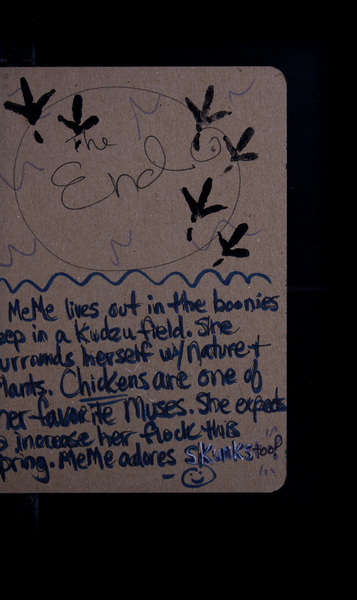 the
End
MeMe lives out in the boonies
eep in a Kudzu field. She
urrounds herself w/ Nature +
lants. Chickens are one of
her favorite Muses. She expects
o increase her flock this
pring. MeMe adores skunks too!